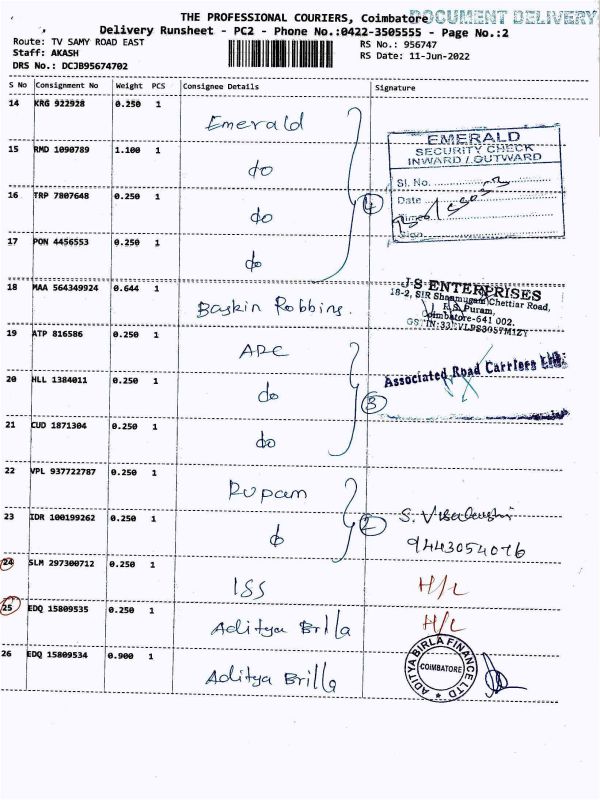 THE PROFESSIONAL COURIERS, Coimbatore DOCUMENT DELIVERY
Delivery Runsheet - PC2 - Phone No.:0422-3505555 - Page No.:2
Route: TV SAMY ROAD EAST RS No.: 956747
Staff: AKASH RS Date: 11-Jun-2022
DRS No.: DCJB95674702
S No Consignment No Weight PCS Consignee Details Signature
14 KRG 922928 0.250 1 Emerald
EMERALD
SECURITY CHECK
INWARD / OUTWARD
Sl. No.
Date
Time
Sign
15 RMD 1090789 1.100 1 do
16 TRP 7807648 0.250 1 do
4
17 PON 4456553 0.250 1 do
18 MAA 564349924 0.644 1 Baskin Robbins.
J S ENTERPRISES
18-2, SIR Shanmugam Chettiar Road,
R.S. Puram,
Coimbatore-641 002.
19 ATP 816586 0.250 1 ARC
Associated Road Carriers Ltd.
20 HLL 1384011 0.250 1 do
3
21 CUD 1871304 0.250 1 do
22 VPL 937722787 0.250 1 Rupam
2
23 IDR 100199262 0.250 1 do
9443054076
24 SLM 297300712 0.250 1 ISS H/L
25 EDQ 15809535 0.250 1 Aditya Brlla H/L
26 EDQ 15809534 0.900 1 Aditya Brilla
ADITYA BIRLA FINANCE LTD
COIMBATORE